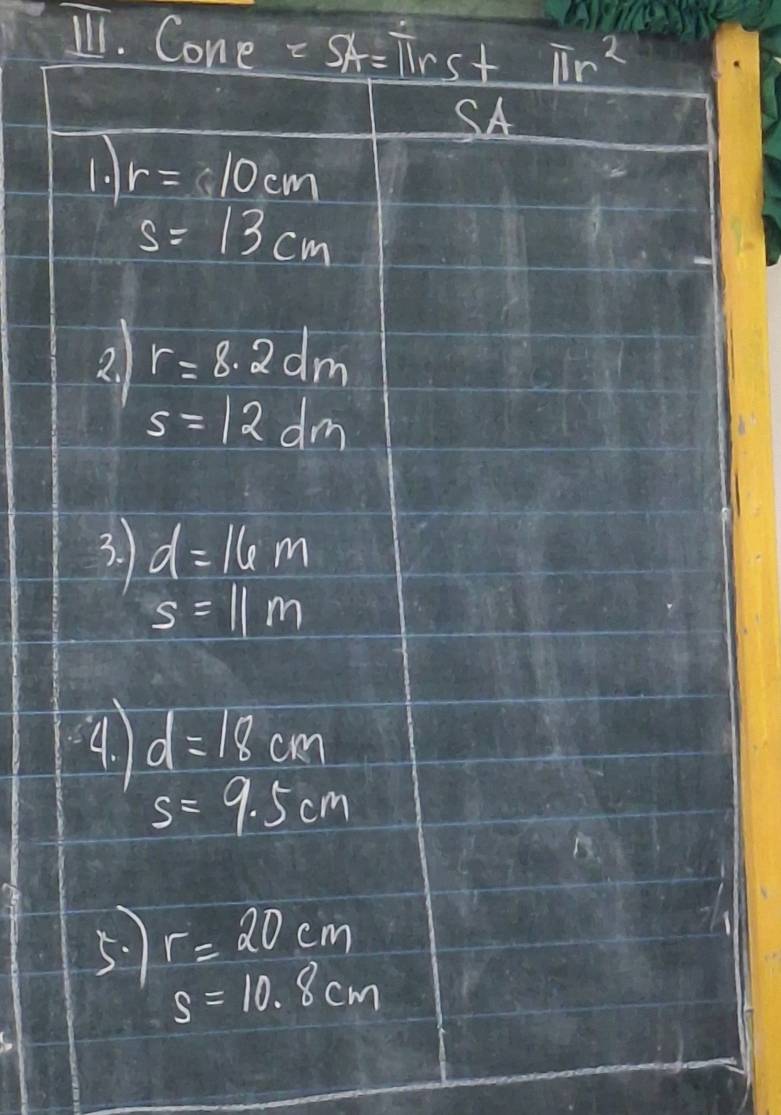 III. Cone = SA = πrs + πr²
SA
1.) r = 10 cm
s = 13 cm
2.) r = 8.2 dm
s = 12 dm
3.) d = 16 m
s = 11 m
4.) d = 18 cm
s = 9.5 cm
5.) r = 20 cm
s = 10.8 cm